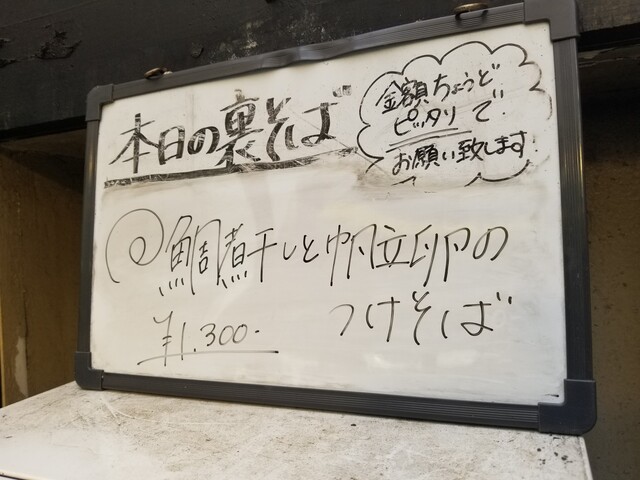 本日の裏そば
金額ちょうど
ピッタリで
お願い致します
鯛煮干しと帆立卵の
つけそば
¥1,300-